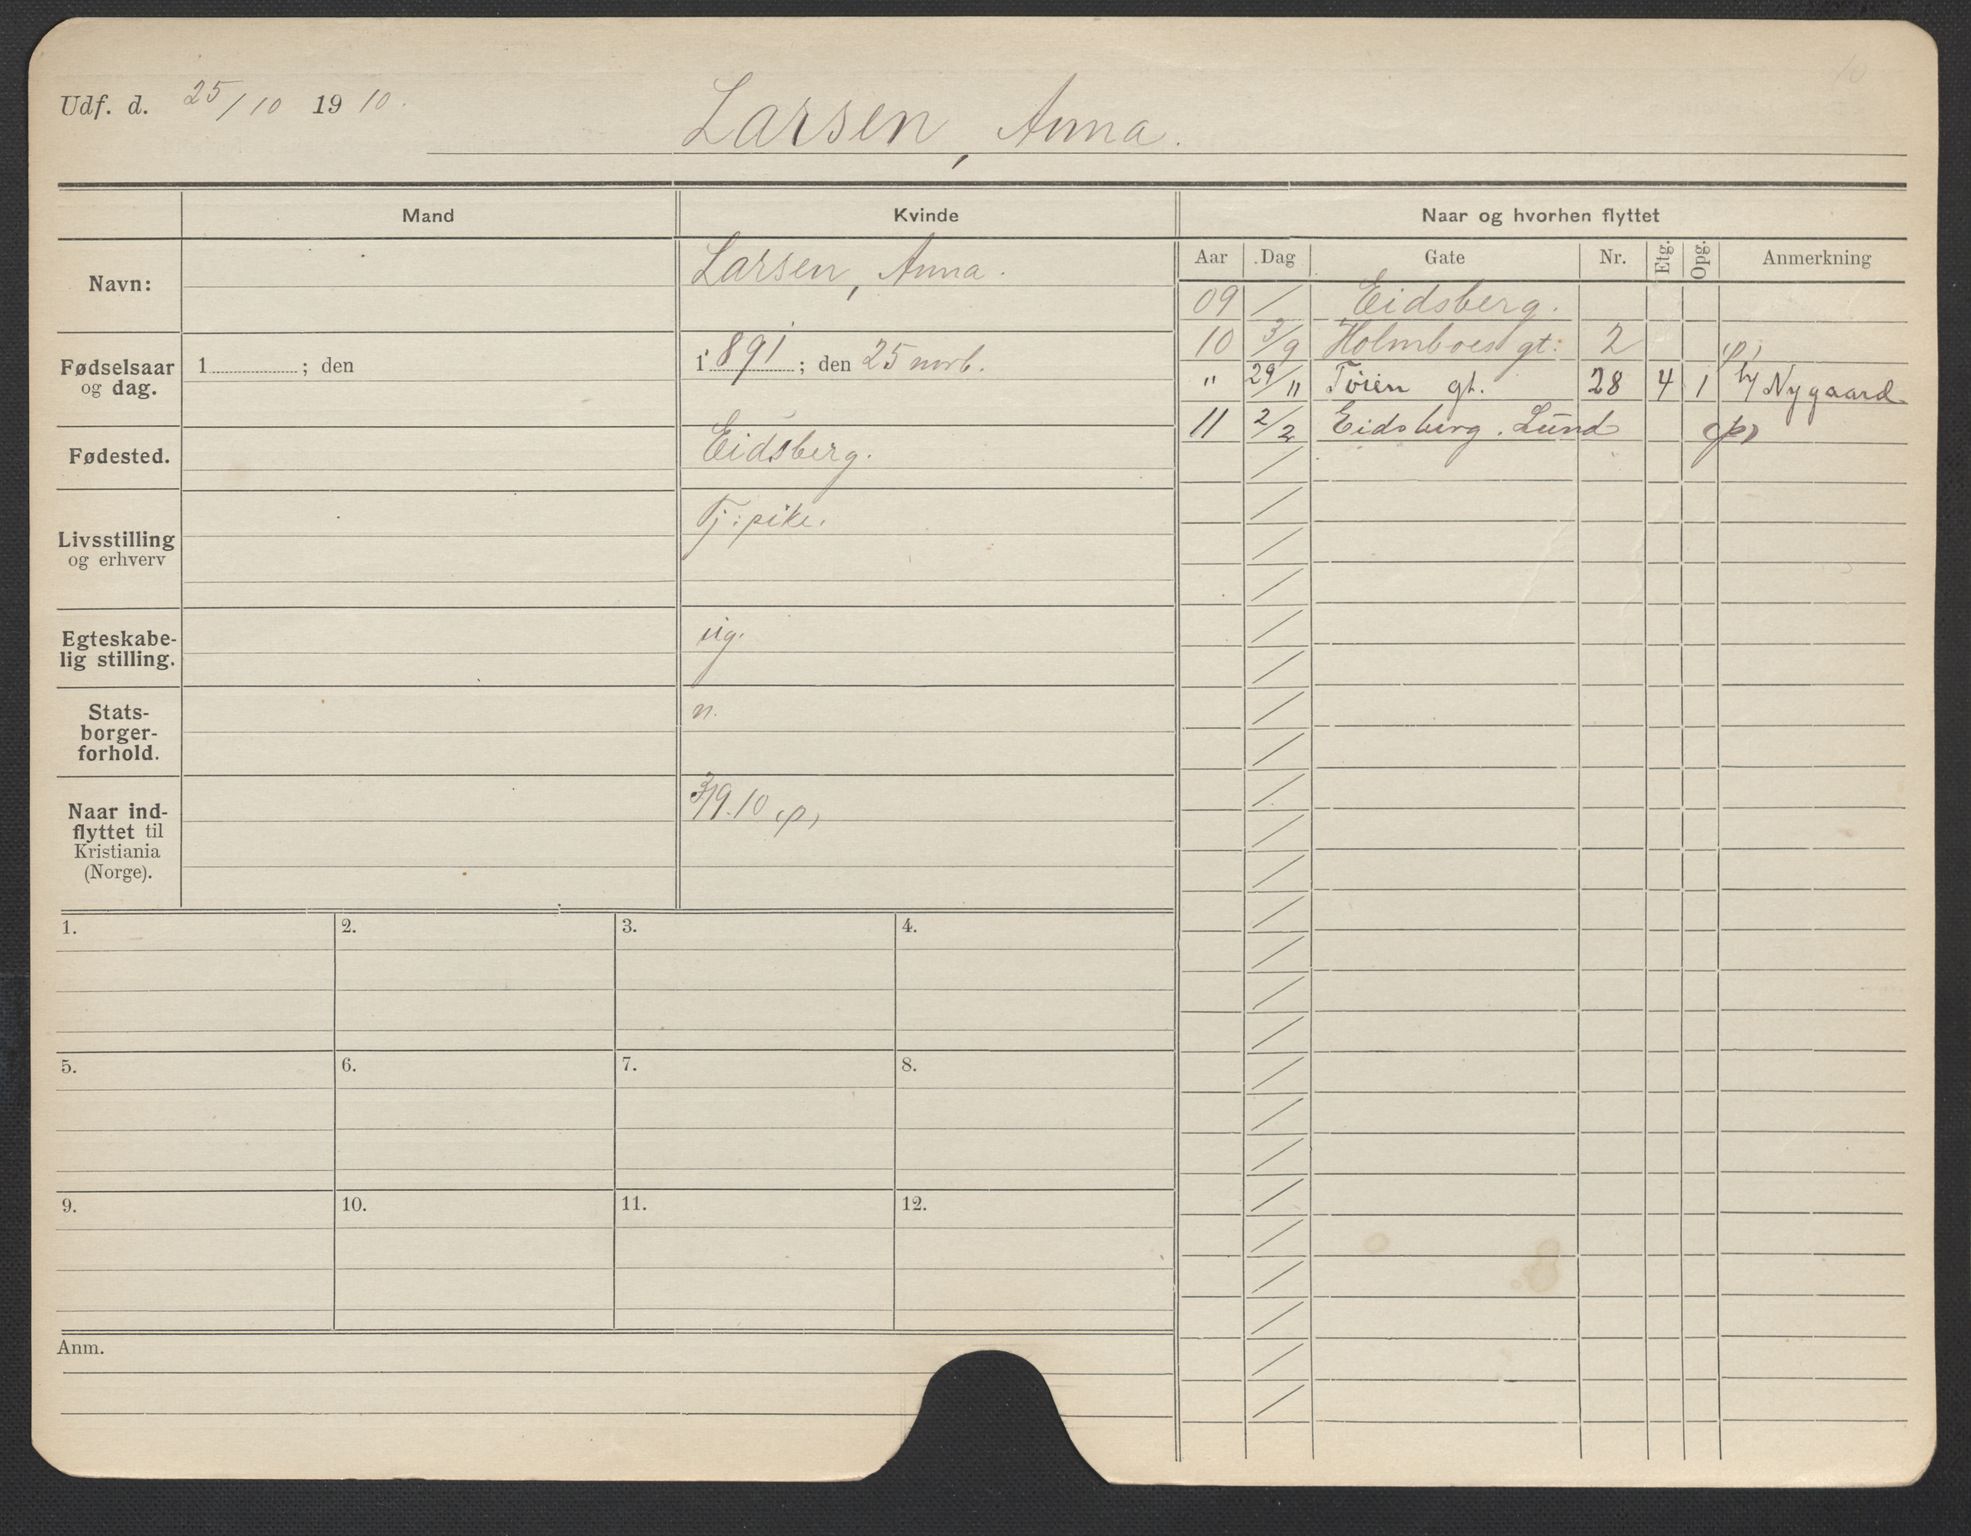 Udf. d. 25/10 1910.
Larsen, Anna.
Mand
Kvinde
Naar og hvorhen flyttet
Navn:
Larsen, Anna.
Fødselsaar
og dag.
1 ; den
1 891 ; den 25 novb.
Fødested.
Eidsberg.
Livsstilling
og erhverv
Tj: pike.
Egteskabe-
lig stilling.
ug.
Stats-
borger-
forhold.
n.
Naar ind-
flyttet til
Kristiania
(Norge).
3/9.10 (p)
Aar Dag Gate Nr. Etg. Opg. Anmerkning
09 / Eidsberg.
10 3/9 Holmboes gt. 2 (p)
" 29/11 Tøien gt. 28 4 1 h/ Nygaard
11 2/2 Eidsberg. Lund (p)
1. 2. 3. 4.
5. 6. 7. 8.
9. 10. 11. 12.
Anm.
10